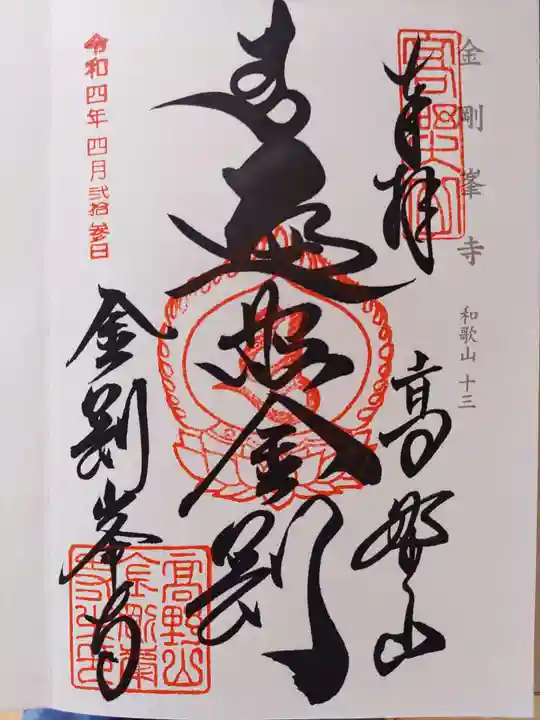 金剛峯寺 和歌山 十三
奉拝
高野山
遍照金剛
金剛峯寺
令和四年四月弐拾参日
高野山
金剛峯